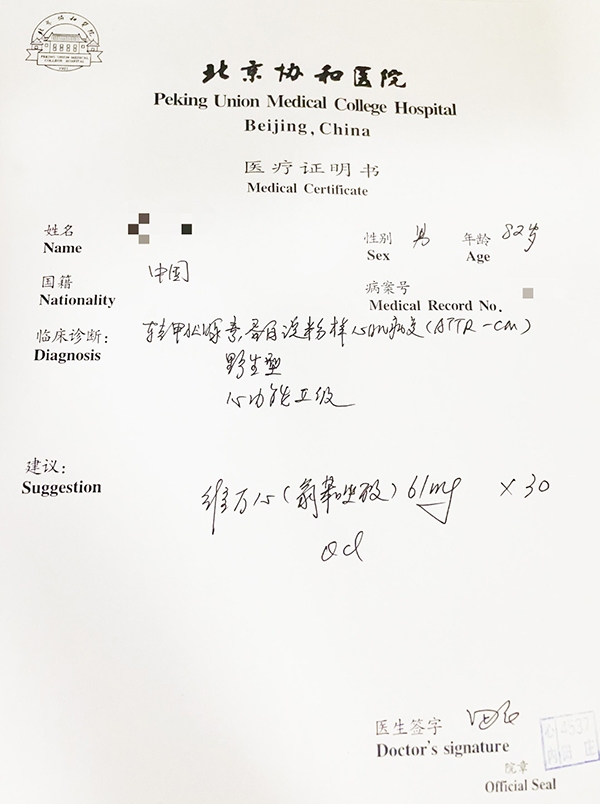 北京协和医院
PEKING UNION MEDICAL
COLLEGE HOSPITAL
1921
北京协和医院
Peking Union Medical College Hospital
Beijing, China
医疗证明书
Medical Certificate
姓名
Name
性别 男 年龄 82岁
Sex Age
国籍 中国
Nationality
病案号
Medical Record No.
临床诊断: 转甲状腺素蛋白淀粉样心肌病变(ATTR-CM)
Diagnosis
野生型
心功能Ⅱ级
建议:
Suggestion
维万心(氯苯唑酸) 61mg ×30
Qd
医生签字
Doctor's signature
心 4537
内 田 庄
院章
Official Seal